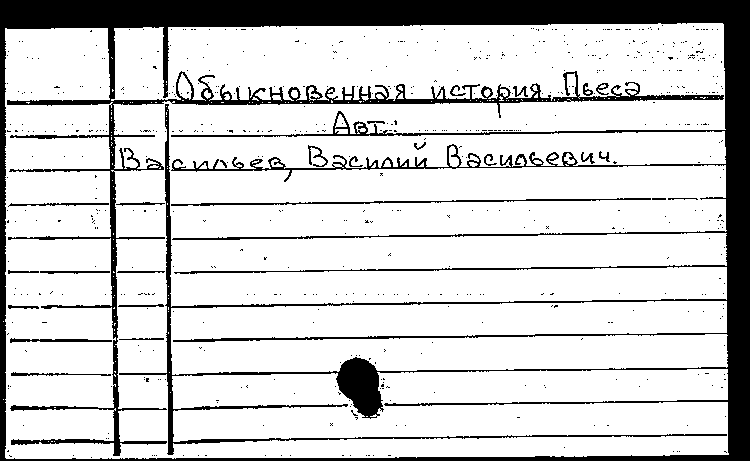 Обыкновенная история. Пьеса
Авт.:
Васильев, Василий Васильевич.